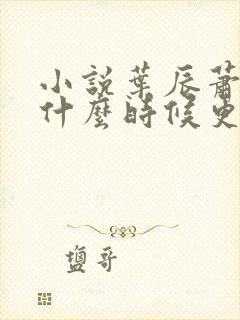 小說葉辰蕭
什麼時候更
鹽哥